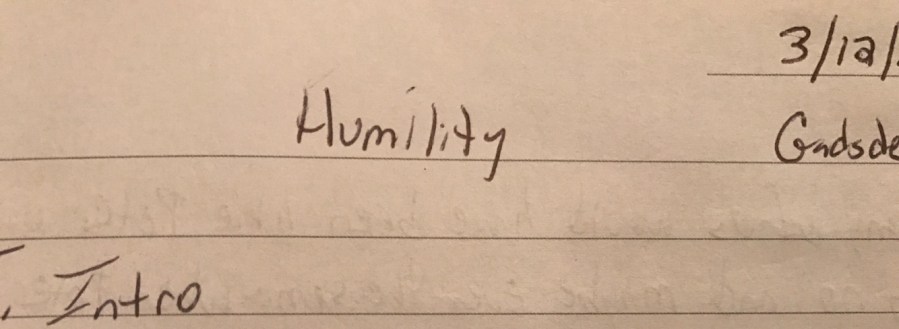 3/12/
Humility
Gadsde
I. Intro